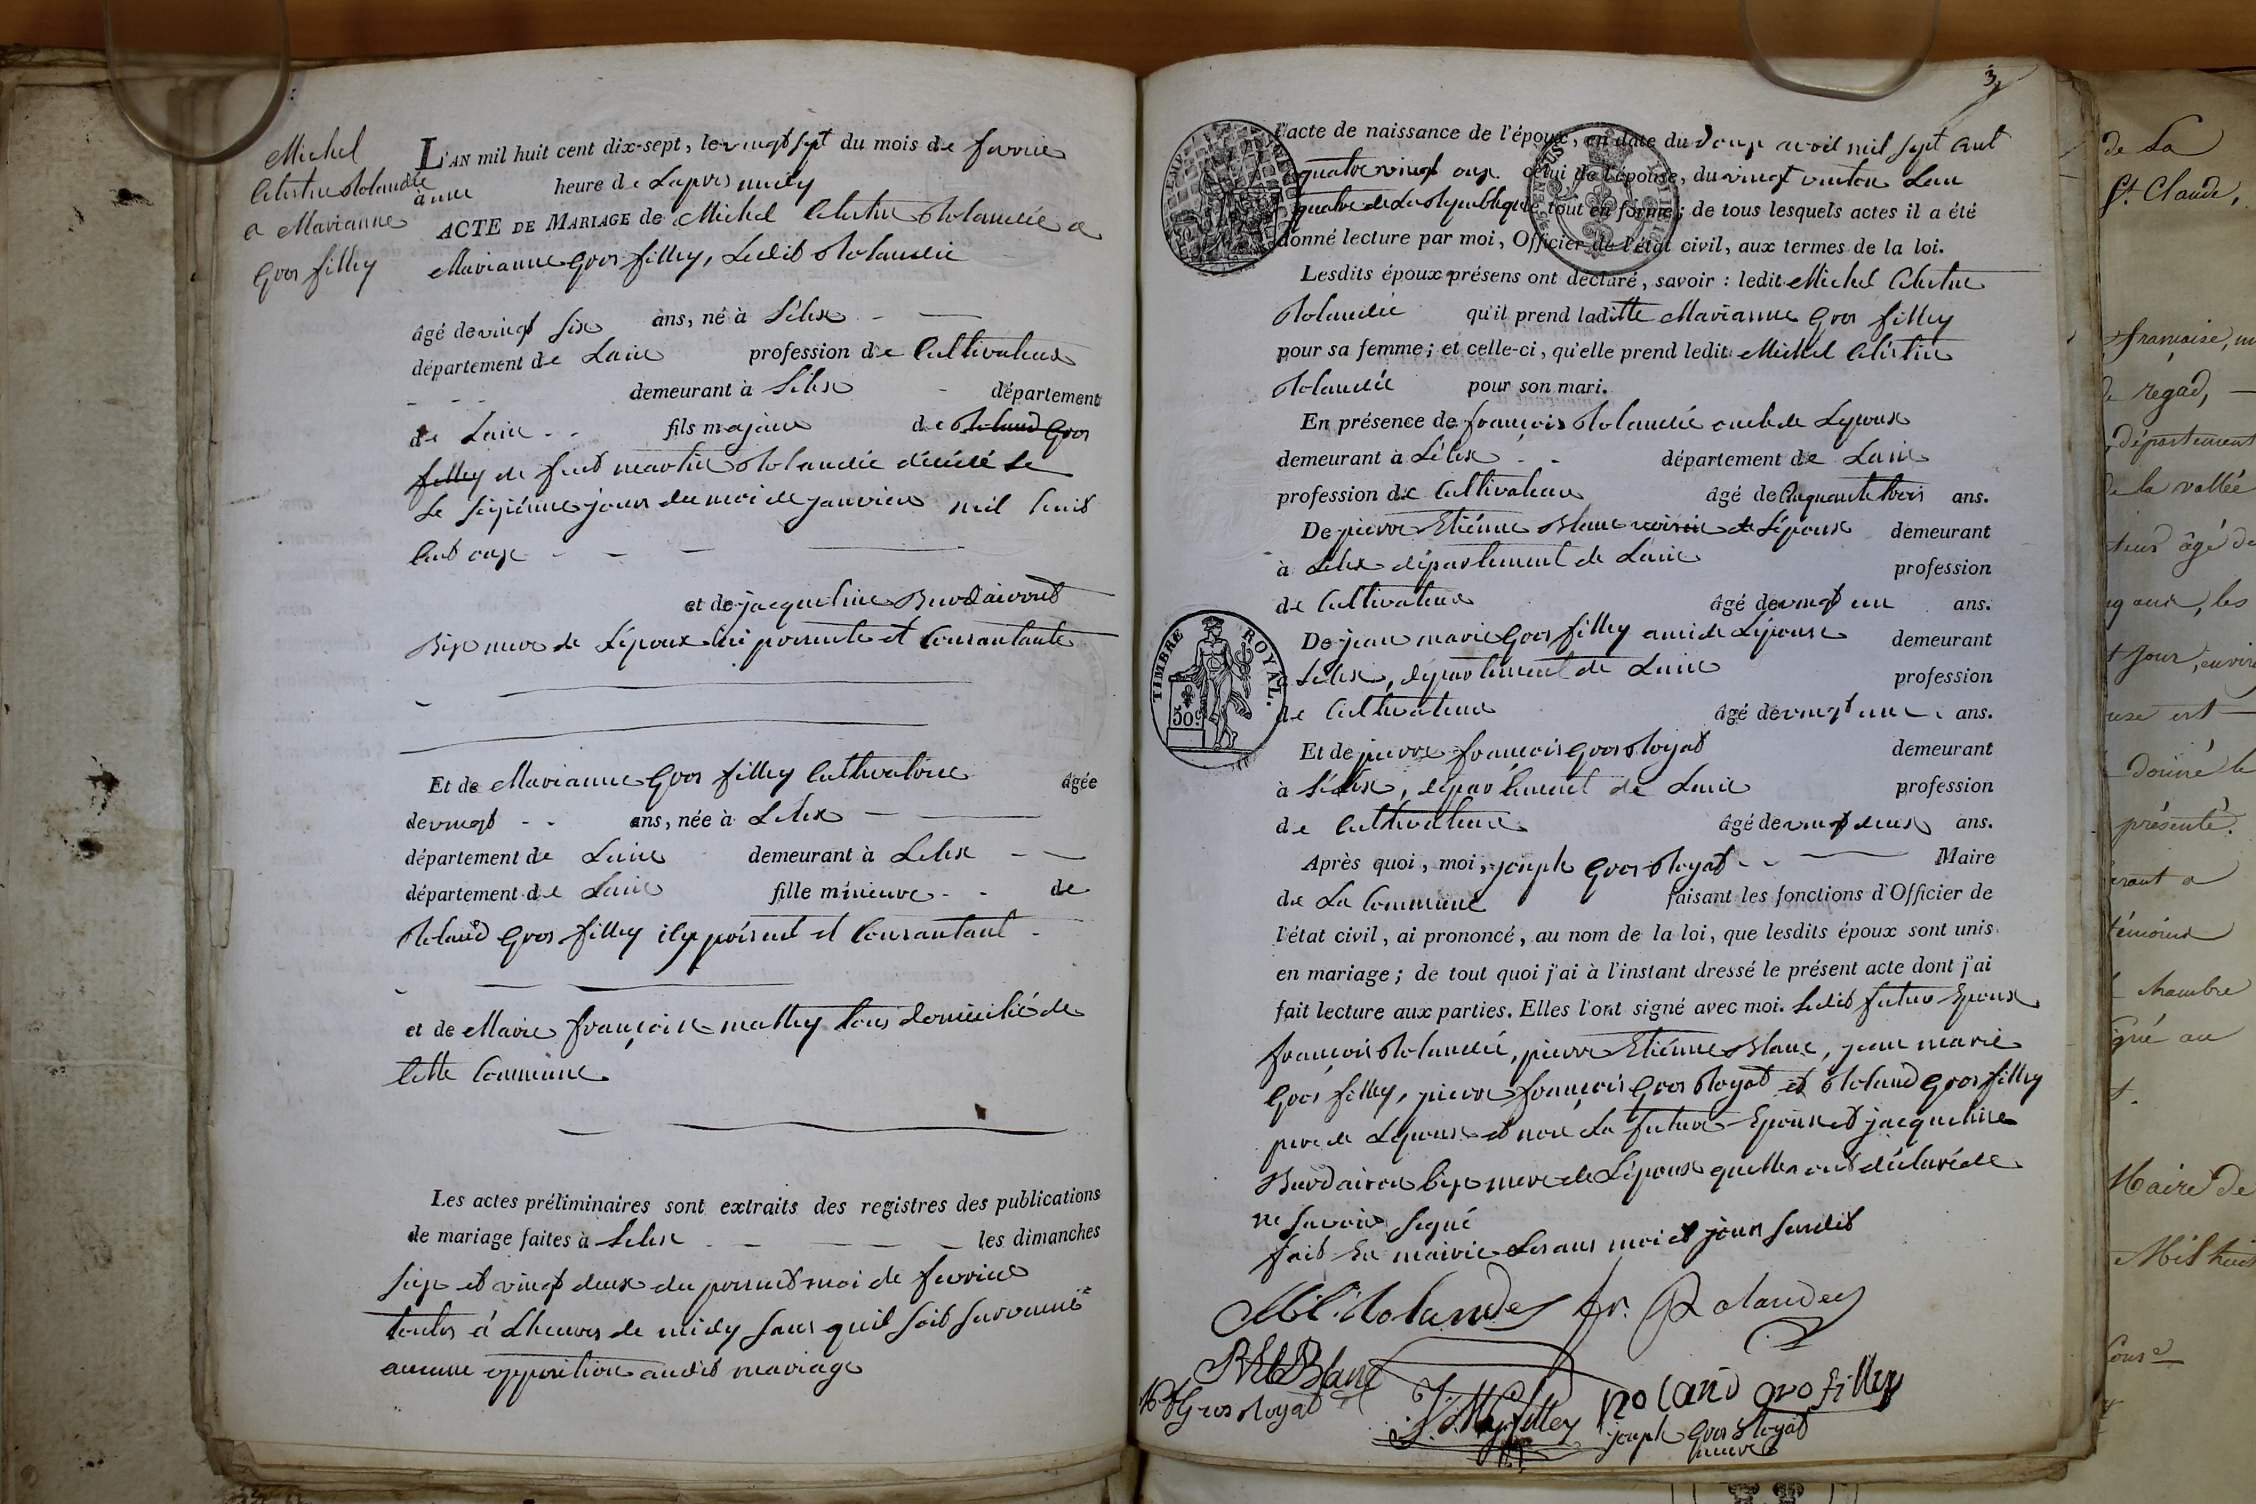 Michel
Celestin Rolandée
a Marianne
Gros filley
L'AN mil huit cent dix-sept, le vingt sept du mois de fevrier
à une heure de Lapres midy
ACTE DE MARIAGE de Michel Celestin Rolandée a
Marianne Gros filley, Ledit Rolandée
âgé de vingt six ans, né à Lélex
département de Lain profession de Cultivateur
demeurant à Lélex département
de Lain fils majeur de Roland Gros
filley de feut martin Rolandée décédé Le
Le sixiéme jour du moi de janvier mil huit
Cent onze
et de jacqueline Burdairond
Bize mere de Lépoux ici presente et Consantante
Et de Marianne Gros filley Cultivatrice âgée
de vingt ans, née à Lelex
département de Lain demeurant à Lelex
département de Lain fille mineure de
Roland Gros filley icy présent et Consantant
et de Marie françoise mathey tous domicilié de
Cette Commune
Les actes préliminaires sont extraits des registres des publications
de mariage faites à Lelex les dimanches
seize et vingt deux du present moi de fevrier
toutes à Lheures de midy sans quil soit survenue
aucune opposition audit mariage
3
l'acte de naissance de l'époux, en date du douze avril mil sept Cent
quatre vingt onze celui de l'épouse, du vingt ventose Lan
quatre de La République, tout en forme; de tous lesquels actes il a été
donné lecture par moi, Officier de l'état civil, aux termes de la loi.
Lesdits époux présens ont déclaré, savoir : ledit Michel Celestin
Rolandée qu'il prend laditte Marianne Gros filley
pour sa femme; et celle-ci, qu'elle prend ledit Michel Celéstin
Rolandée pour son mari.
En présence de françois Rolandée oncle de Lepoux
demeurant à Lélex département de Lain
profession de Cultivateur âgé de Cinquante trois ans.
De pierre Etiénne Blanc voisin de Lépoux demeurant
à Lelex département de Lain profession
de Cultivateur âgé de vingt un ans.
De jean marie Gros filley ami de Lépouse demeurant
Lélex, département de Lain profession
de Cultivateur âgé de vingt un ans.
Et de pierre françois Gros Royat demeurant
à Lélex, département de Lain profession
de Cultivateur âgé de vingt deux ans.
Après quoi, moi, joseph Gros Royat Maire
de La Commune faisant les fonctions d'Officier de
l'état civil, ai prononcé, au nom de la loi, que lesdits époux sont unis
en mariage; de tout quoi j'ai à l'instant dressé le présent acte dont j'ai
fait lecture aux parties. Elles l'ont signé avec moi. Ledit futur Epoux
françois Rolandée, pierre Etiénne Blanc, jean marie
Gros filley, pierre françois Gros Royat et Roland Gros filley
pere de Lepouse et non La future Epouse et jacqueline
Burdairon bize mere de Lépoux quelles ont déclaré de
ne savoir signé
fait En mairie Les ans moi et jour susdit
TIMBRE ROYAL.
50c
Mel. Rolandez fr. Rolandez
P. Et. Blanc
Gros Royat
J. M. G. filley
roland gro filley
joseph Gros Royat
maire
de La
St. Claude,
française,
de regad,
département
de la vallée
âgé de
les
donné le
présenté.
a
témoins
chambre
au
Maire de
Mil huit